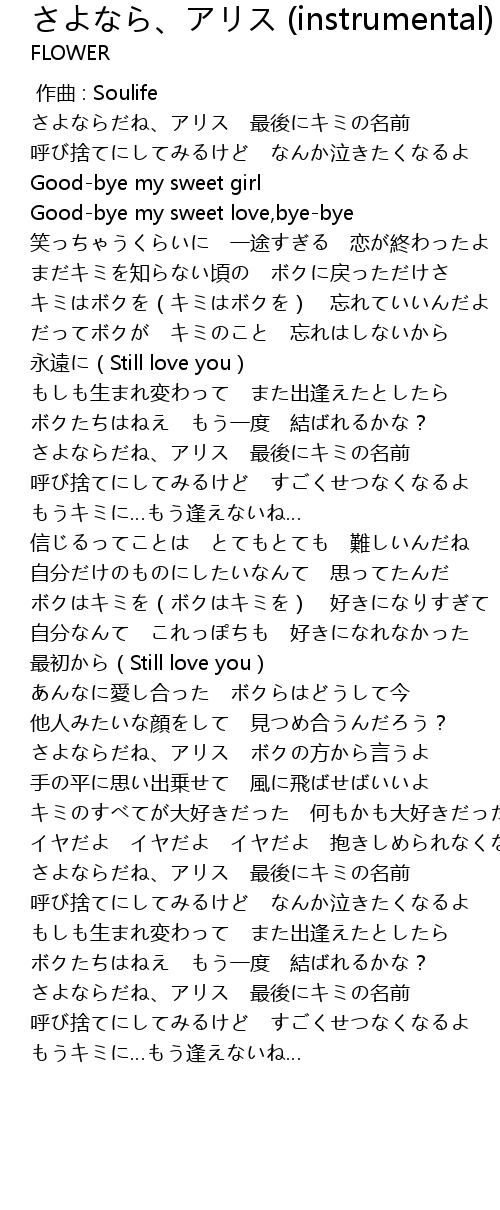 さよなら、アリス (instrumental)
FLOWER
作曲 : Soulife
さよならだね、アリス　最後にキミの名前
呼び捨てにしてみるけど　なんか泣きたくなるよ
Good-bye my sweet girl
Good-bye my sweet love,bye-bye
笑っちゃうくらいに　一途すぎる　恋が終わったよ
まだキミを知らない頃の　ボクに戻っただけさ
キミはボクを ( キミはボクを )　忘れていいんだよ
だってボクが　キミのこと　忘れはしないから
永遠に ( Still love you )
もしも生まれ変わって　また出逢えたとしたら
ボクたちはねえ　もう一度　結ばれるかな ?
さよならだね、アリス　最後にキミの名前
呼び捨てにしてみるけど　すごくせつなくなるよ
もうキミに...もう逢えないね...
信じるってことは　とてもとても　難しいんだね
自分だけのものにしたいなんて　思ってたんだ
ボクはキミを ( ボクはキミを )　好きになりすぎて
自分なんて　これっぽちも　好きになれなかった
最初から ( Still love you )
あんなに愛し合った　ボクらはどうして今
他人みたいな顔をして　見つめ合うんだろう ?
さよならだね、アリス　ボクの方から言うよ
手の平に思い出乗せて　風に飛ばせばいいよ
キミのすべてが大好きだった　何もかも大好きだった
イヤだよ　イヤだよ　イヤだよ　抱きしめられなくな
さよならだね、アリス　最後にキミの名前
呼び捨てにしてみるけど　なんか泣きたくなるよ
もしも生まれ変わって　また出逢えたとしたら
ボクたちはねえ　もう一度　結ばれるかな ?
さよならだね、アリス　最後にキミの名前
呼び捨てにしてみるけど　すごくせつなくなるよ
もうキミに...もう逢えないね...